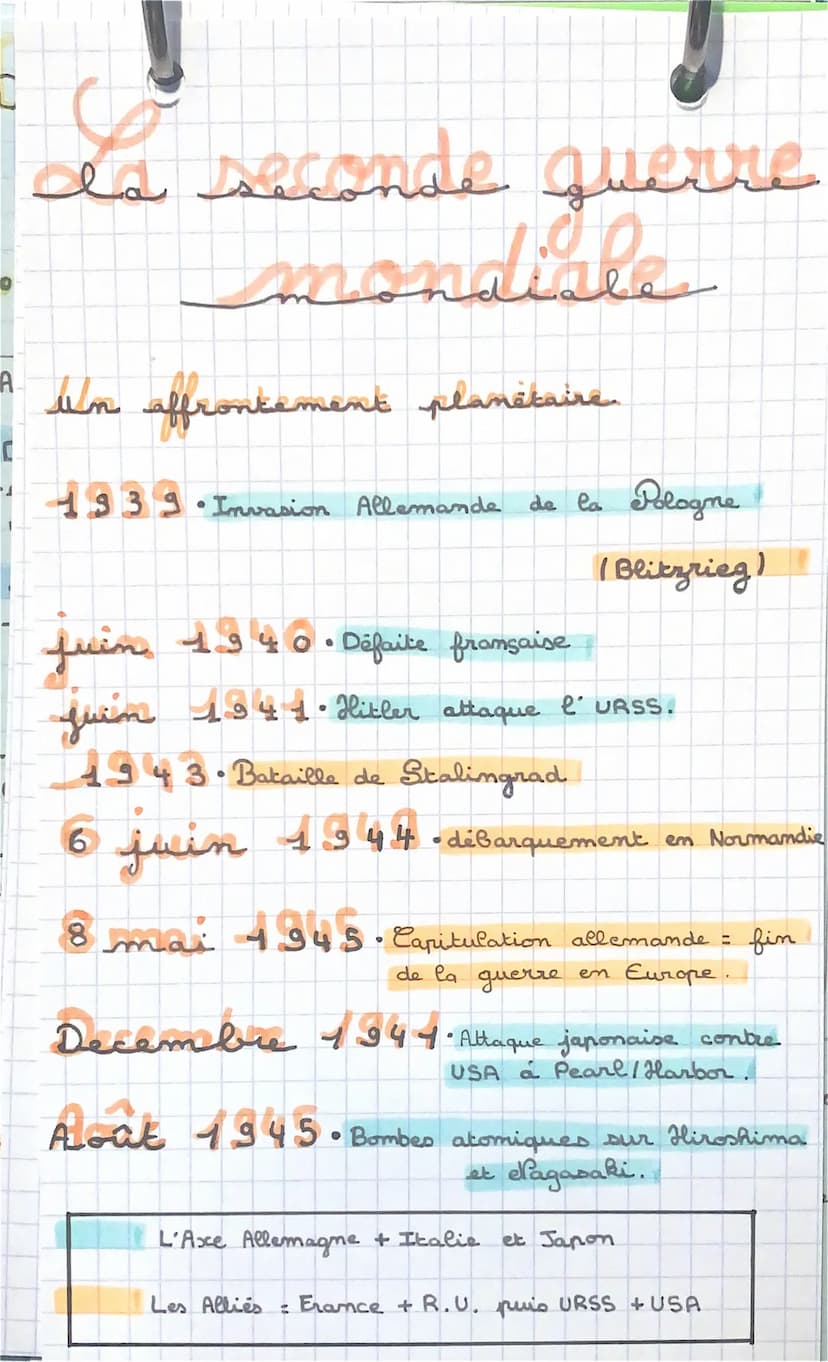 La seconde guerre
mondiale
Un affrontement planétaire.
1939 • Invasion Allemande de la Pologne
(Blitzrieg)
juin 1940 • Défaite française
juin 1941 • Hitler attaque l'URSS.
1943 • Bataille de Stalingrad
6 juin 1944 • débarquement en Normandie
8 mai 1945 • Capitulation allemande = fin
de la guerre en Europe.
Decembre 1941 • Attaque japonaise contre
USA à Pearl/Harbor.
Août 1945 • Bombes atomiques sur Hiroshima
et Nagasaki.
L'Axe Allemagne + Italie et Japon
Les Alliés = France + R.U. puis URSS + USA